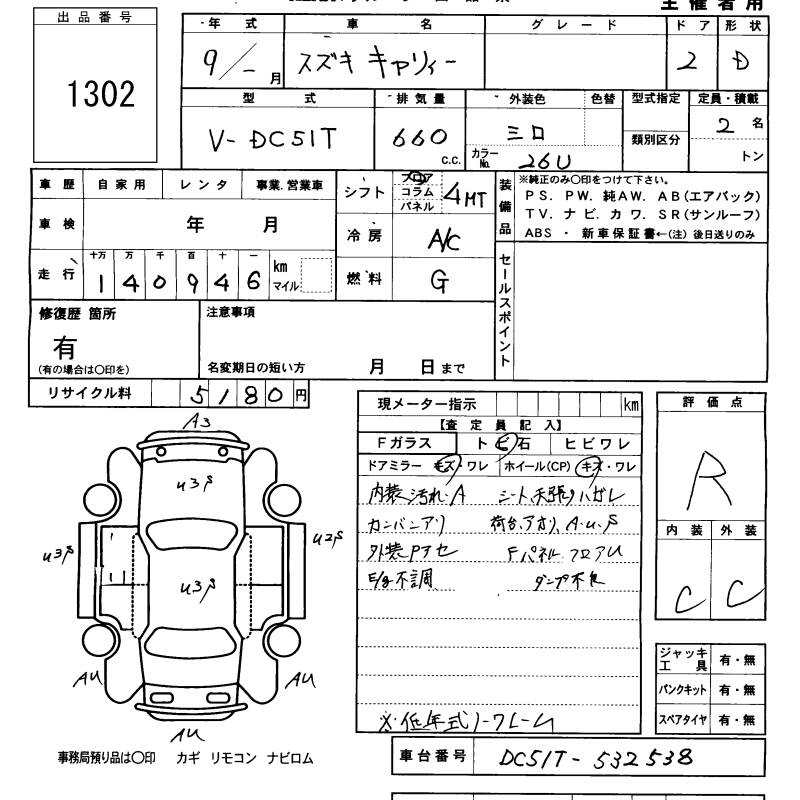 主催者用
出品番号
1302
年式 車名 グレード ドア 形状
9/- 月 スズキ キャリィー 2 D
型式 排気量 外装色 色替 型式指定 定員・積載
V-DC51T 660 c.c. シロ 類別区分 2 名
カラーNo. 26U トン
車歴 自家用 レンタ 事業.営業車 シフト フロア コラム パネル 4MT
車検 年 月 冷房 A/C
走行 十万 万 千 百 十 一
140946 km マイル 燃料 G
装備品 ※純正のみ〇印をつけて下さい。
PS. PW. 純AW. AB(エアバック)
TV. ナビ. カワ. SR(サンルーフ)
ABS ・ 新車保証書←(注) 後日送りのみ
セールスポイント
修復歴 箇所 注意事項
有
(有の場合は〇印を) 名変期日の短い方 月 日まで
リサイクル料 5180 円
現メーター指示 km
【査定員記入】
Fガラス トビ石 ヒビワレ
ドアミラー キズ・ワレ ホイール(CP) キズ・ワレ
内装汚れ・A シート,天張りハガレ
カンバンアリ 荷台,アオリ,A.u.S
外装Pアセ Fパネル フロアU
E/g不調 ダンプ不良
※低年式ノークレーム
評価点
R
内装 外装
C C
A3
u3S
u3S
u2S
u3S
AU
AU
AU
ジャッキ工具 有・無
パンクキット 有・無
スペアタイヤ 有・無
事務局預り品は〇印 カギ リモコン ナビロム
車台番号 DC51T-532538